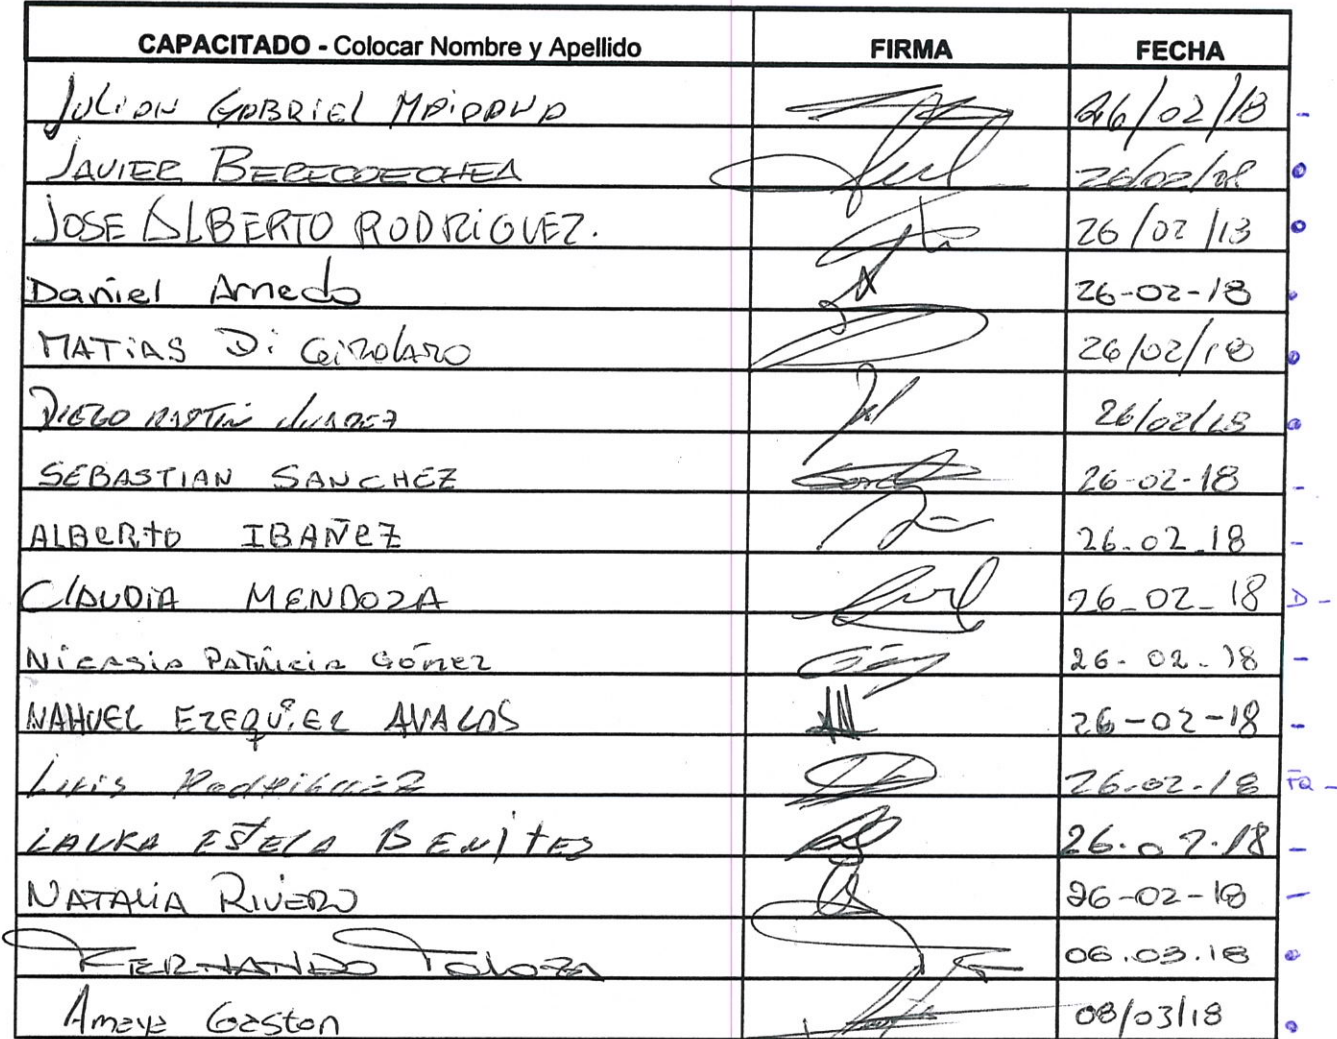 CAPACITADO - Colocar Nombre y Apellido FIRMA FECHA
JULIAN GABRIEL MAIDANA 26/02/18
JAVIER BERECOECHEA 26/02/18
JOSE ALBERTO RODRIGUEZ. 26/02/18
Daniel Arnedo 26-02-18
MATIAS Di GiROLAMO 26/02/18
DIEGO MARTIN JUAREZ 26/02/18
SEBASTIAN SANCHEZ 26-02-18
ALBERTO IBAÑEZ 26.02.18
CLAUDIA MENDOZA 26_02_18
Nicasia PATRICIA GÓMEZ 26-02-18
NAHUEL EZEQUIEL AVALOS 26-02-18
LUIS RODRIGUEZ 26-02-18
LAURA ESTELA BENITES 26.02.18
NATALIA RIVERO 26-02-18
FERNANDO TOLOZA 06.03.18
Amaya Gaston 08/03/18